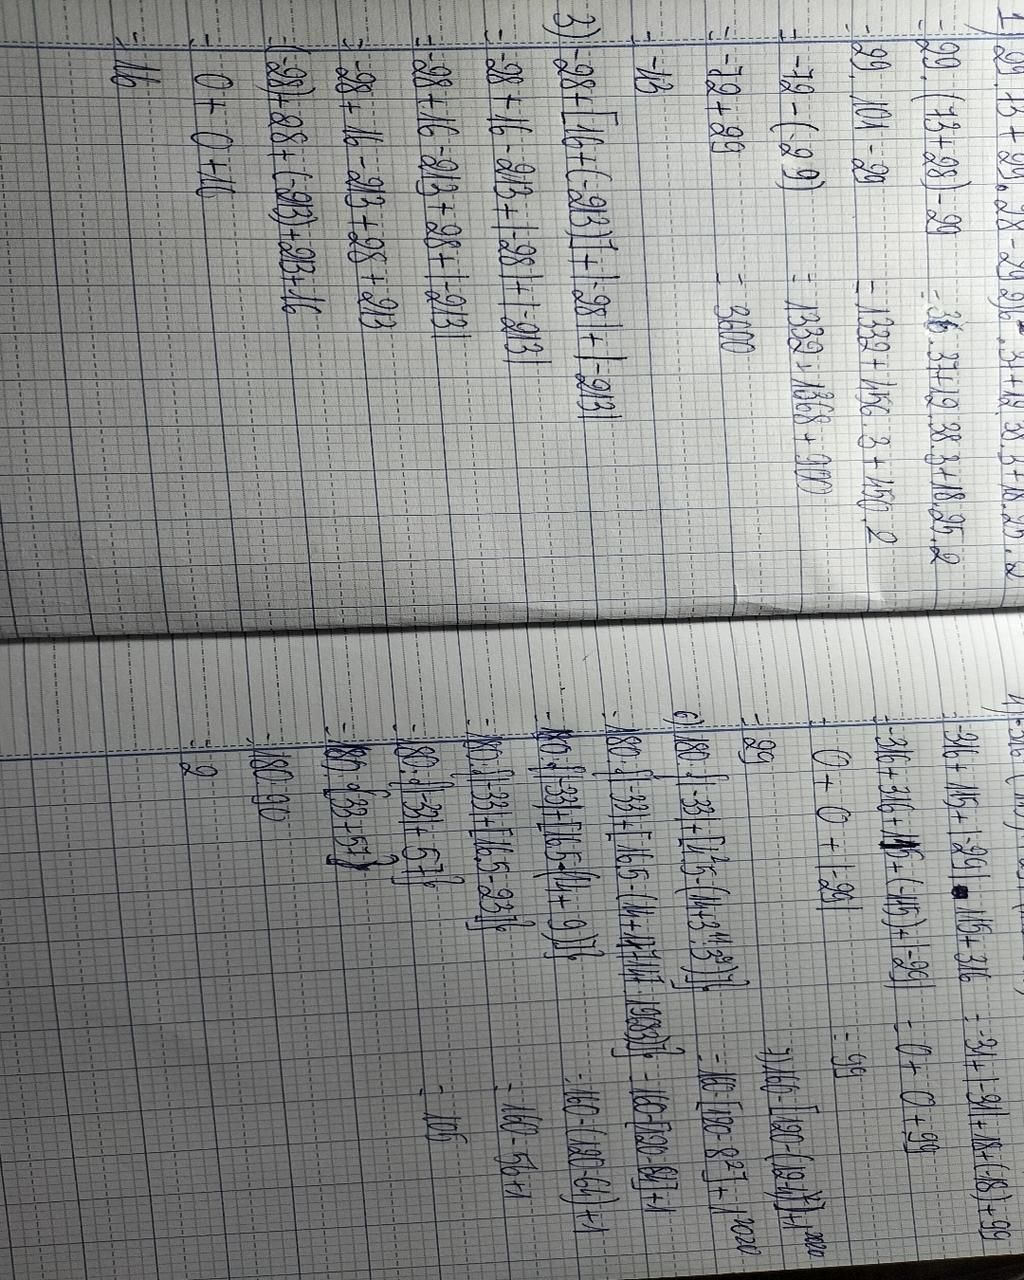 1) 29.73 + 29.28 - 29
= 29.(73+28)-29
= 29.101-29
= -72-(-29)
= -72+29
= -43
2^2.3^2.37+12.38.3+18.25.2
= 36.37+12.38.3+18.25.2
= 1332+456.3+450.2
= 1332+1368+900
= 3600
3) -28+[16+(-213)]+|-28|+|-213|
= -28+16-213+|-28|+|-213|
= -28+16-213+28+|-213|
= -28+16-213+28+213
= (-28)+28+(-213)+213+16
= 0+0+16
= 16
= -316+115+|-29|-115+316
= -316+316+115+(-115)+|-29|
= 0+0+|-29|
= 29
= -31+|-31|+18+(-18)+99
= 0+0+99
= 99
6) 180:{|-33|+[4^2.5-(14+3^11:3^9)]}
= 180:{|-33|+[16.5-(14+9)]}
= 180:{|-33|+[16.5-23]}
= 180:{|-33|+57}
= 180:{33+57}
= 180:90
= 2
7) 160-[120-(12-4)^2]+1^2020
= 160-[120-8^2]+1^2020
= 160-[120-64]+1
= 160-(120-64)+1
= 160-56+1
= 105